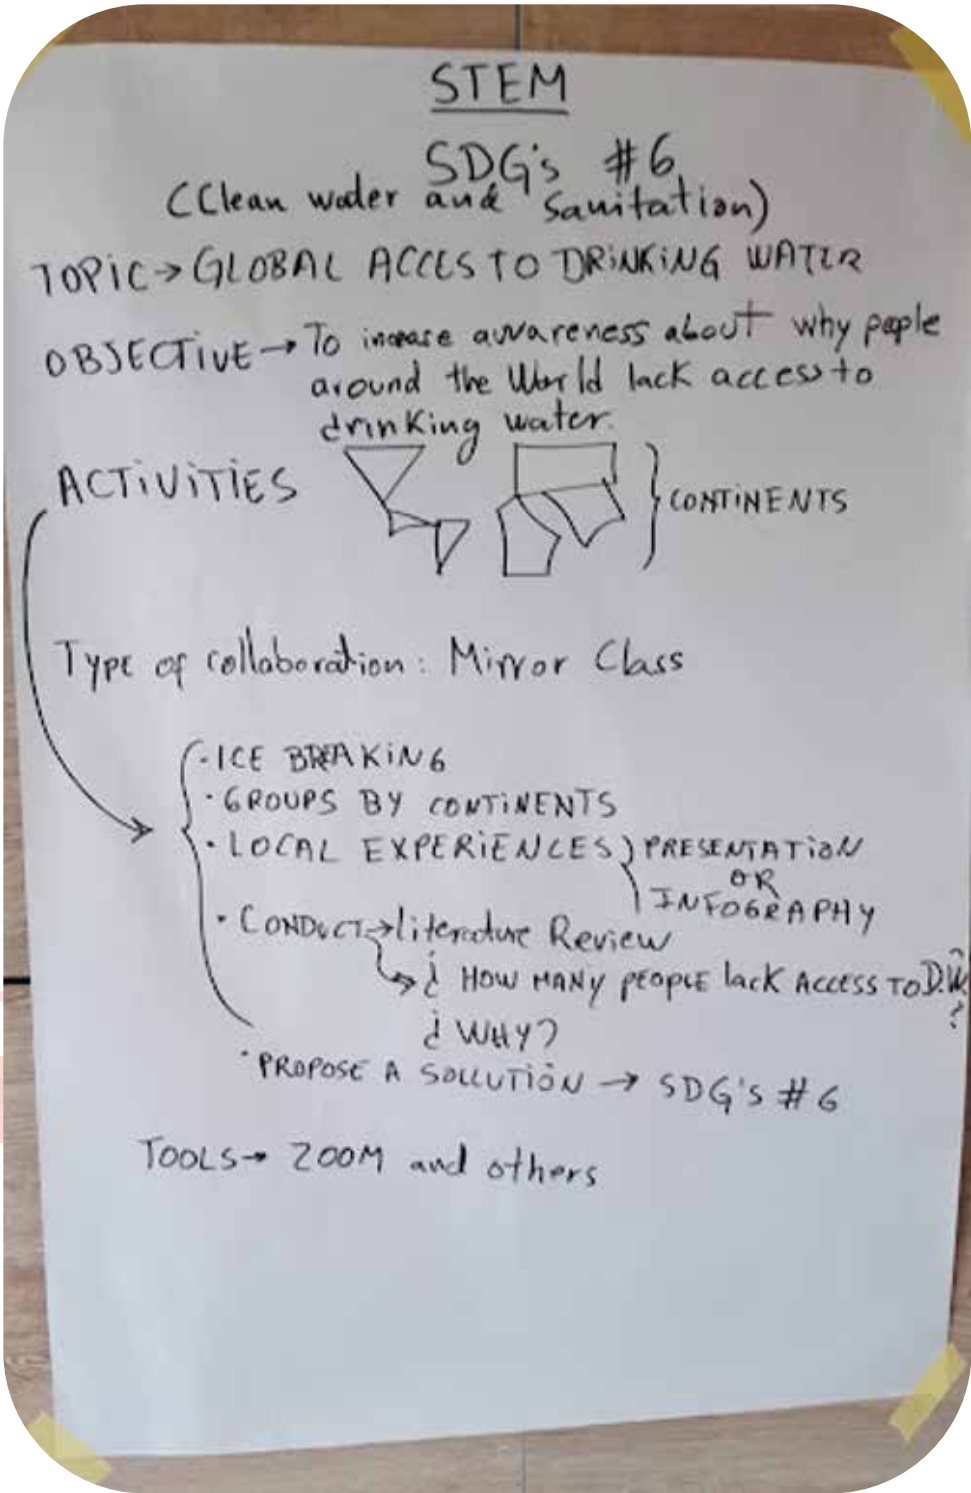 STEM
SDG's #6
(Clean water and Sanitation)
TOPIC → GLOBAL ACCES TO DRiNKiNG WATER
OBJECTiVE → To increase awareness about why people
around the World lack access to
drinking water.
ACTiViTiES
CONTiNENTS
Type of collaboration: Mirror Class
· ICE BREAKiNG
· GROUPS BY CONTiNENTS
· LOCAL EXPERiENCES } PRESENTATiON
OR
INFOGRAPHY
· CONDUCT → literature Review
¿ HOW MANY PEOPLE lack ACCESS TO D.W.
?
¿ WHY?
· PROPOSE A SOLLUTiON → SDG'S #6
TOOLS → ZOOM and others